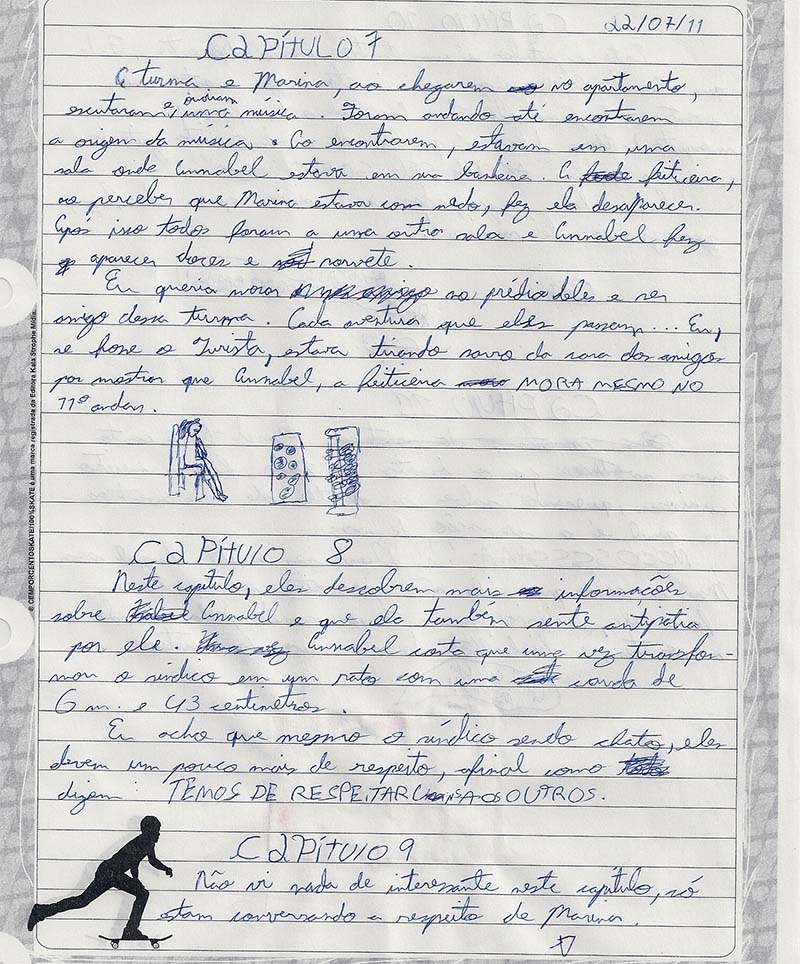 22/07/11
CAPÍTULO 7
A turma e Marina, ao chegarem no apartamento,
escutaram e ouviram uma música. Foram andando até encontrarem
a origem da música. Ao encontrarem, estavam em uma
sala onde Annabel estava em sua banheira. A feiticeira,
ao perceber que Marina estava com medo, fez ela desaparecer.
Após isso todos foram a uma outra sala e Annabel fez
aparecer doces e sorvete.
Eu queria morar no prédio deles e ser
amigo dessa turma. Cada aventura que eles passam... Eu,
se fosse o Turista, estava tirando sarro da cara dos amigos
por mostrar que Annabel, a feiticeira MORA MESMO NO
11º andar.
CAPÍTULO 8
Neste capítulo, eles descobrem mais informações
sobre Annabel e que ela também sente antipatia
por ele. Annabel conta que uma vez transfor-
mou o síndico em um rato com uma cauda de
6 m. e 43 centímetros.
Eu acho que mesmo o síndico sendo chato, eles
devem um pouco mais de respeito, afinal como
dizem: TEMOS DE RESPEITAR UNS AOS OUTROS.
CAPÍTULO 9
Não vi nada de interessante neste capítulo, só
estam conversando a respeito de Marina.
© CEMPORCENTOSKATE/100%SKATE é uma marca registrada da Editora Kala Strophe Mídia.